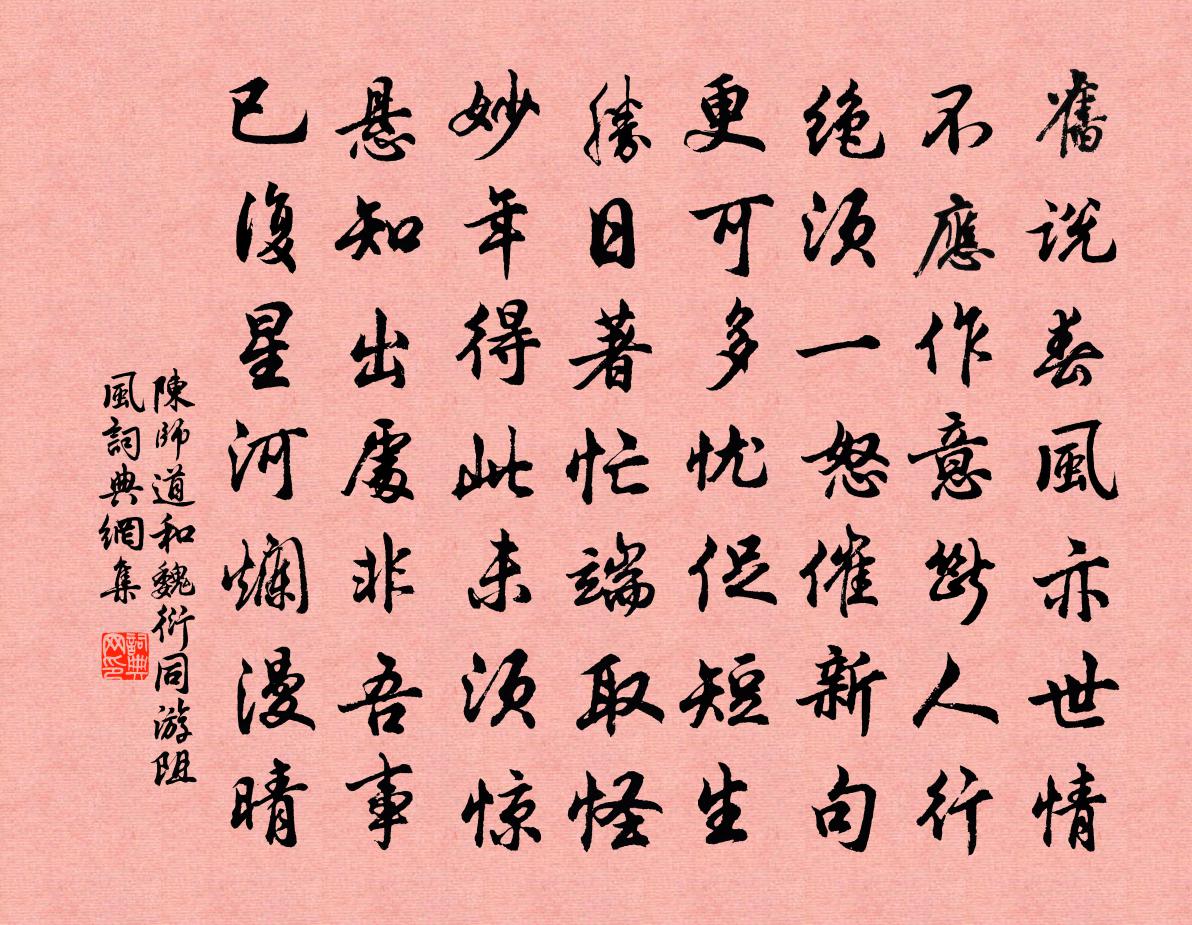 舊说春風亦世情
不應作意斷人行
绝须一怒催新句
更可多忧促短生
勝日著忙端取怪
妙年得此未须惊
悬知出處非吾事
已復星河爛漫晴
陳師道和魏衍同游阻
風詞典網集
詞典
网印